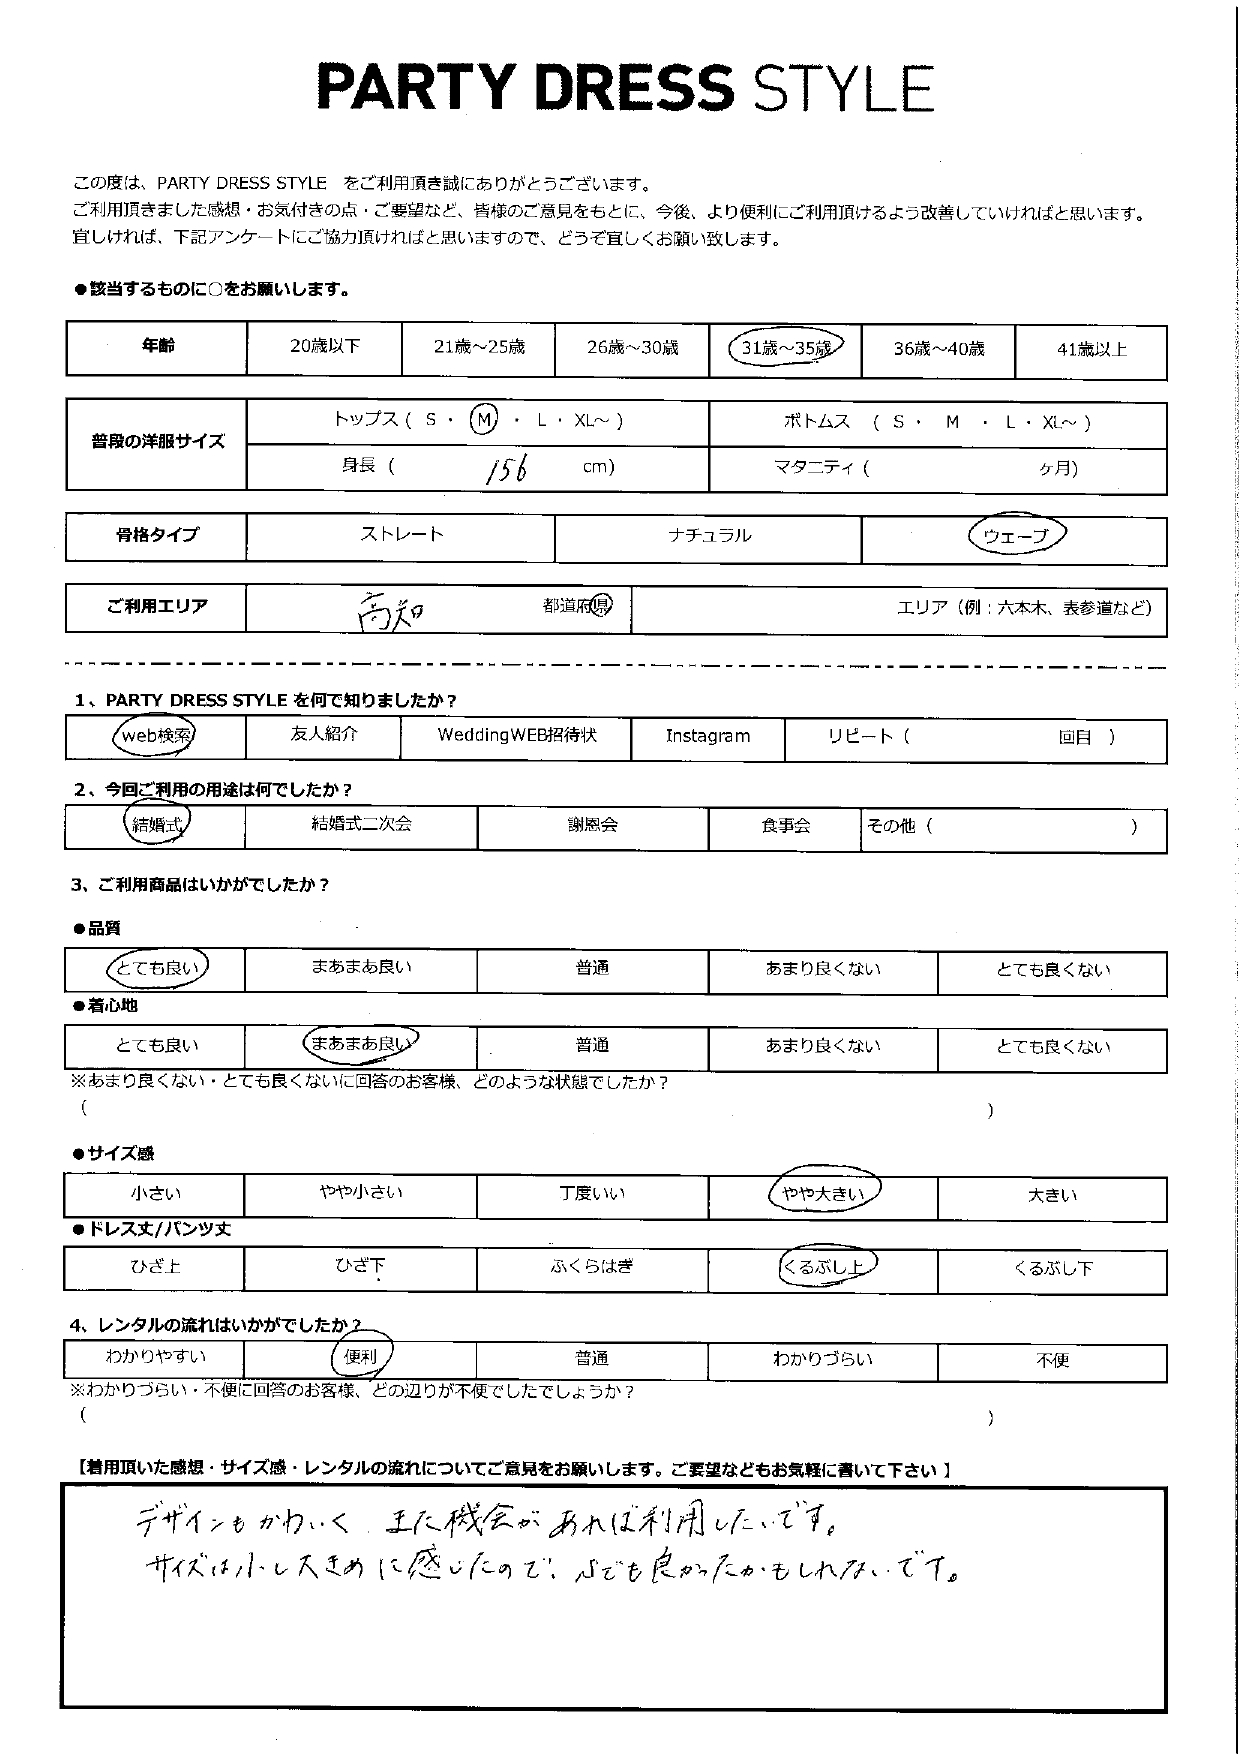 PARTY DRESS STYLE
この度は、PARTY DRESS STYLE をご利用頂き誠にありがとうございます。
ご利用頂きました感想・お気付きの点・ご要望など、皆様のご意見をもとに、今後、より便利にご利用頂けるよう改善していければと思います。
宜しければ、下記アンケートにご協力頂ければと思いますので、どうぞ宜しくお願い致します。
●該当するものに○をお願いします。
年齢 20歳以下 21歳～25歳 26歳～30歳 31歳～35歳 36歳～40歳 41歳以上
普段の洋服サイズ
トップス ( S ・ M ・ L ・ XL～ ) ボトムス ( S ・ M ・ L ・ XL～ )
身長 ( 156 cm) マタニティ ( ヶ月)
骨格タイプ ストレート ナチュラル ウェーブ
ご利用エリア 高知 都道府県 エリア（例：六本木、表参道など）
1、PARTY DRESS STYLE を何で知りましたか？
web検索 友人紹介 WeddingWEB招待状 Instagram リピート ( 回目 )
2、今回ご利用の用途は何でしたか？
結婚式 結婚式二次会 謝恩会 食事会 その他 ( )
3、ご利用商品はいかがでしたか？
●品質
とても良い まあまあ良い 普通 あまり良くない とても良くない
●着心地
とても良い まあまあ良い 普通 あまり良くない とても良くない
※あまり良くない・とても良くないに回答のお客様、どのような状態でしたか？
( )
●サイズ感
小さい やや小さい 丁度いい やや大きい 大きい
●ドレス丈/パンツ丈
ひざ上 ひざ下 ふくらはぎ くるぶし上 くるぶし下
4、レンタルの流れはいかがでしたか？
わかりやすい 便利 普通 わかりづらい 不便
※わかりづらい・不便に回答のお客様、どの辺りが不便でしたでしょうか？
( )
【着用頂いた感想・サイズ感・レンタルの流れについてご意見をお願いします。ご要望などもお気軽に書いて下さい 】
デザインもかわいく また機会があれば利用したいです。
サイズは少し大きめに感じたので、Sでも良かったかもしれないです。